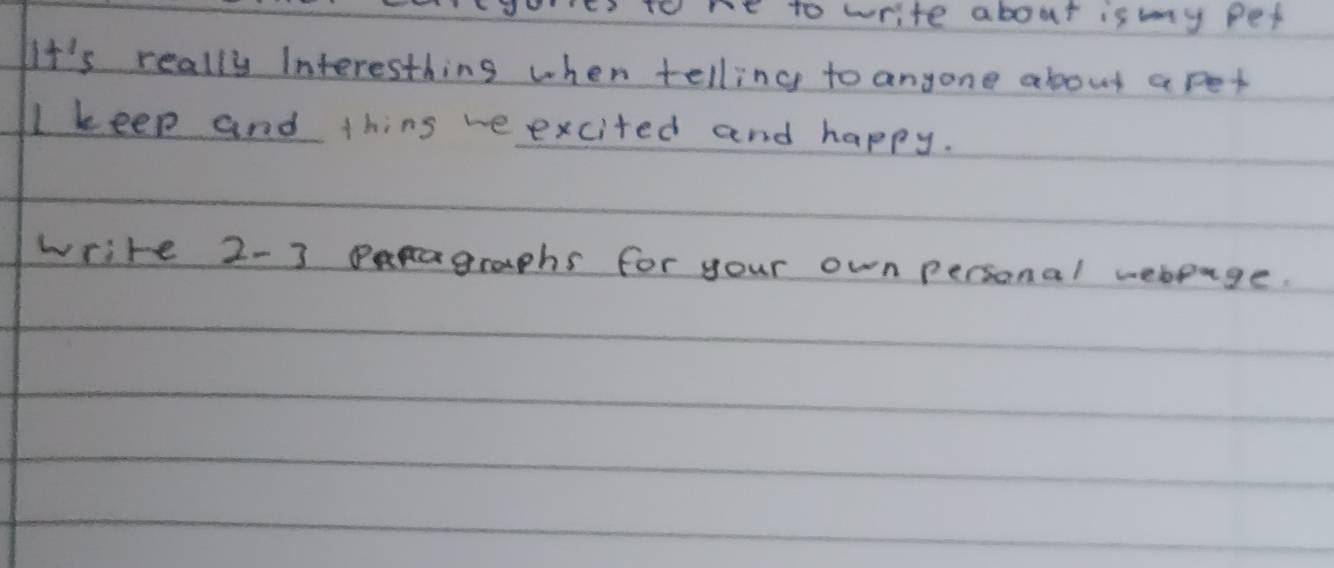 to me to write about is my pet
It's really Interesthing when telling to anyone about a pet
I keep and thing me excited and happy.
write 2-3 paragraphs for your own personal webpage.